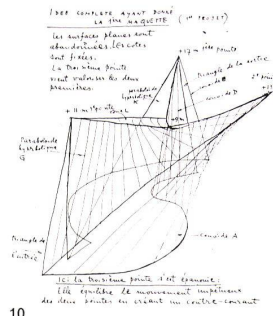 IDEE COMPLETE AYANT DONNÉ
LA 1ère MAQUETTE (1er PROJET)
Les surfaces planes sont
abandonnées. Les cotes
sont fixées.
La troisième pointe
vient valoriser les deux
premières.
1ère pointe
triangle de la sortie
conoide B
conoide D
paraboloide
hyperbolique
K
2e pointe
conoide L
Paraboloide
hyperbolique
G
triangle de
l'entrée
conoide A
Ici la troisième pointe s'est épanouie:
Elle équilibre le mouvement impétueux
des deux pointes en créant un contre-courant
10